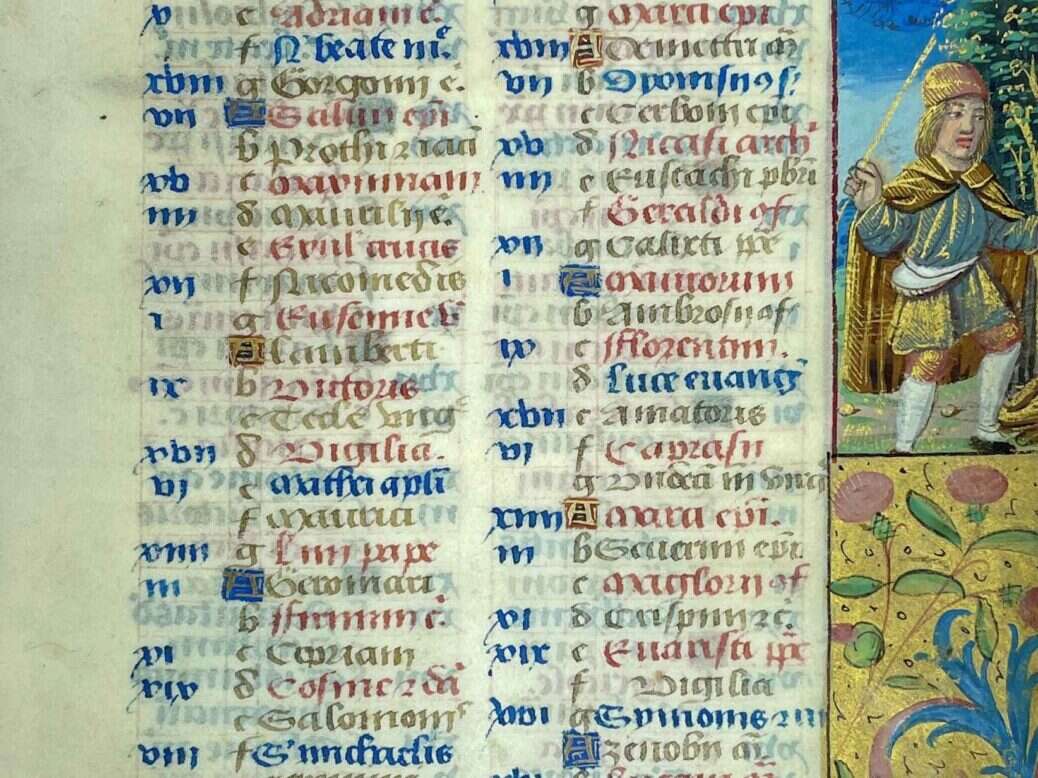 v c Adriani c.
f N. beate mͤ.
xviii g Gorgonij c.
vii A Salui epi
b Prothi ⁊ iacī
xv c maximiani
iiii d Maurilij c.
e Exul̄ crucis
xii f Nicomedis
i g Eufemie v̄
A lamberti
ix b Victoris
c Tecle virḡ
xvii d Vigilia.
vi e Mathei apl̄i
f Mauricii
xiiii g Lini pape
iii A Geromari
b Firmini c.
xi c Cipriani
xix d Cosme ⁊ dā
e Salomonis
viii f S. michaelis
g Marci epi
xviii A Demetrii mr̄
vii b Dyonisii ⁊ s.
c Cerbonii epi
xv d Nicasii arch
iiii e Eustachi pbr̄i
f Geraldi ɔf
xii g Calixti ppe
i A maurorum
b Ambrosii ɔf
ix c Florentini.
d Luce euanḡ
xvii e Amatoris
vi f Caprasii
g Undecī m virḡ
xiiii A marci epi.
iii b Seuerini epi
c Maglorii ɔf
xi d Crispini ⁊ c.
xix e Euaristi ppe
f Vigilia
xvi g Symonis ⁊ iu
A zenobii mr̄